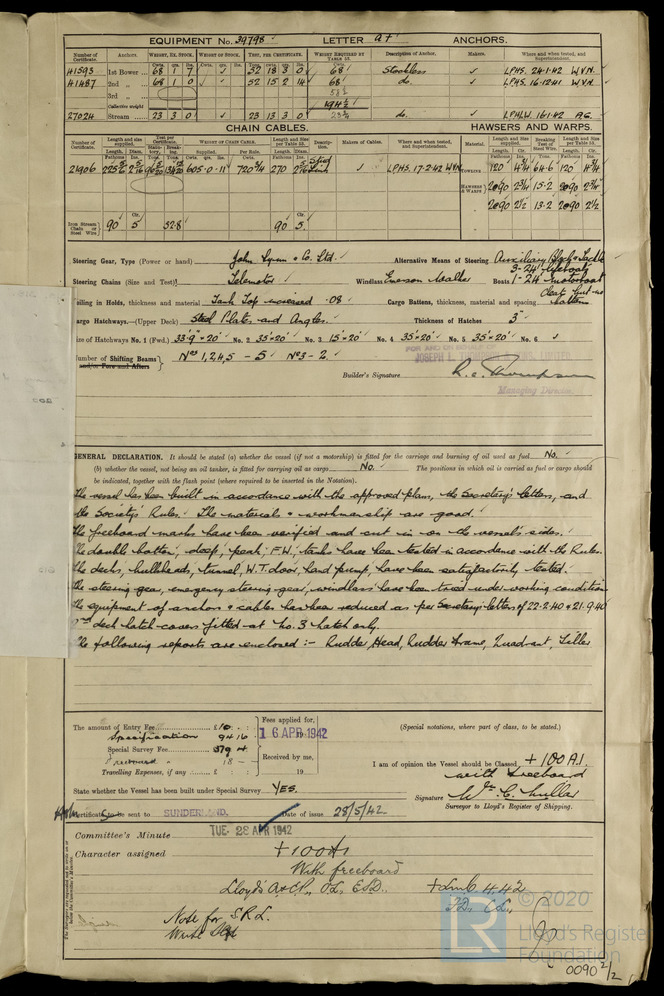 EQUIPMENT No. 39798 LETTER at ANCHORS.
Number of Certificate. Anchors. WEIGHT, EX. STOCK. WEIGHT OF STOCK. TEST, PER CERTIFICATE. WEIGHT REQUIRED BY TABLE 53. Description of Anchor. Makers. Where and when tested, and Superintendent.
41593 1st Bower 68 1 7 52 18 3 0 68 Stockless LPHS. 24.1.42 W.V.N.
41487 2nd " 68 1 0 52 15 2 14 68 do. LPHS. 16.12.41 W.V.N.
3rd "
Collective weight
27024 Stream 23 3 0 23 13 3 0 do. LPHLW. 16.1.42 A.G.
CHAIN CABLES. HAWSERS AND WARPS.
Number of Certificate. Length and size supplied. Test per Certificate. WEIGHT OF CHAIN CABLE. Length and size per Table 53. Description. Makers of Cables. Where and when tested, and Superintendent. Material. Length and size supplied. Breaking Test of Steel Wire. Length and Size per Table 53.
21906 605-0-11 720 3/4 270 Stud Link LPHS. 17.2.42 W.V.N. TOWLINE 120 4 3/4 64.6 120 4 3/4
HAWSERS & WARPS 2@90 2 3/4 15.2 2@90 2 3/4
2@90 2 1/2 13.2 2@90 2 1/2
Iron Stream Chain or Steel Wire 90 5 32.8 90 5
Steering Gear, Type (Power or hand) John Lynn & Co. Ltd. Alternative Means of Steering Auxiliary Block & Tackle
Steering Chains (Size and Test) Telemotor Windlass Emerson Walker Boats 3-24' lifeboats 1-24' motorboat
Ceiling in Holds, thickness and material Tank Top increased .08 Cargo Battens, thickness, material and spacing
Cargo Hatchways.—(Upper Deck) Steel Plates and Angles. Thickness of Hatches 3"
Size of Hatchways No. 1 (Fwd.) 33'9" × 20' No. 2 35' × 20' No. 3 15' × 20' No. 4 35' × 20' No. 5 35' × 20' No. 6
Number of Shifting Beams and/or Fore and Afters Nos 1,2,4,5 - 5 No 3 - 2.
FOR AND ON BEHALF OF
JOSEPH L. THOMPSON & SONS, LIMITED
Builder's Signature R. C. Thompson
Managing Director
GENERAL DECLARATION. It should be stated (a) whether the vessel (if not a motorship) is fitted for the carriage and burning of oil used as fuel No.
(b) whether the vessel, not being an oil tanker, is fitted for carrying oil as cargo No. The positions in which oil is carried as fuel or cargo should
be indicated, together with the flash point (where required to be inserted in the Notation).
The vessel has been built in accordance with the approved plans, the Secretary's letters, and
the Society's Rules. The materials & workmanship are good.
The freeboard marks have been verified and cut in on the vessel's sides.
The double bottom, deep, peak, F.W. tanks have been tested in accordance with the Rules.
The decks, bulkheads, tunnel, W.T. door, hand pump, have been satisfactorily tested.
The steering gear, emergency steering gear, windlass have been tried under working conditions
The equipment of anchors & cables has been reduced as per Secretary's letters of 22.2.40 & 21.9.40
2nd deck hatch covers fitted at No. 3 hatch only.
The following reports are enclosed :- Rudder Head, Rudder Frame, Quadrant, Tiller
The amount of Entry Fee £10
Specification 94 16
Special Survey Fee 379 4
Freeboard 18 -
Travelling Expenses, if any £
Fees applied for,
16 APR 1942
Received by me,
19
(Special notations, where part of class, to be stated.)
I am of opinion the Vessel should be Classed +100A1.
with freeboard
State whether the Vessel has been built under Special Survey Yes.
Signature Wm. C. Millar
Surveyor to Lloyd's Register of Shipping.
Certificate to be sent to SUNDERLAND. Date of issue 28/5/42.
Committee's Minute TUE. 28 APR 1942
Character assigned +100A1
With freeboard
Lloyd's A&CP., O.L., ESD. +LMC 4.42
T.D. C.L.
Note for S.R.L.
© 2020
Lloyd's Register
Foundation
0090 2/2